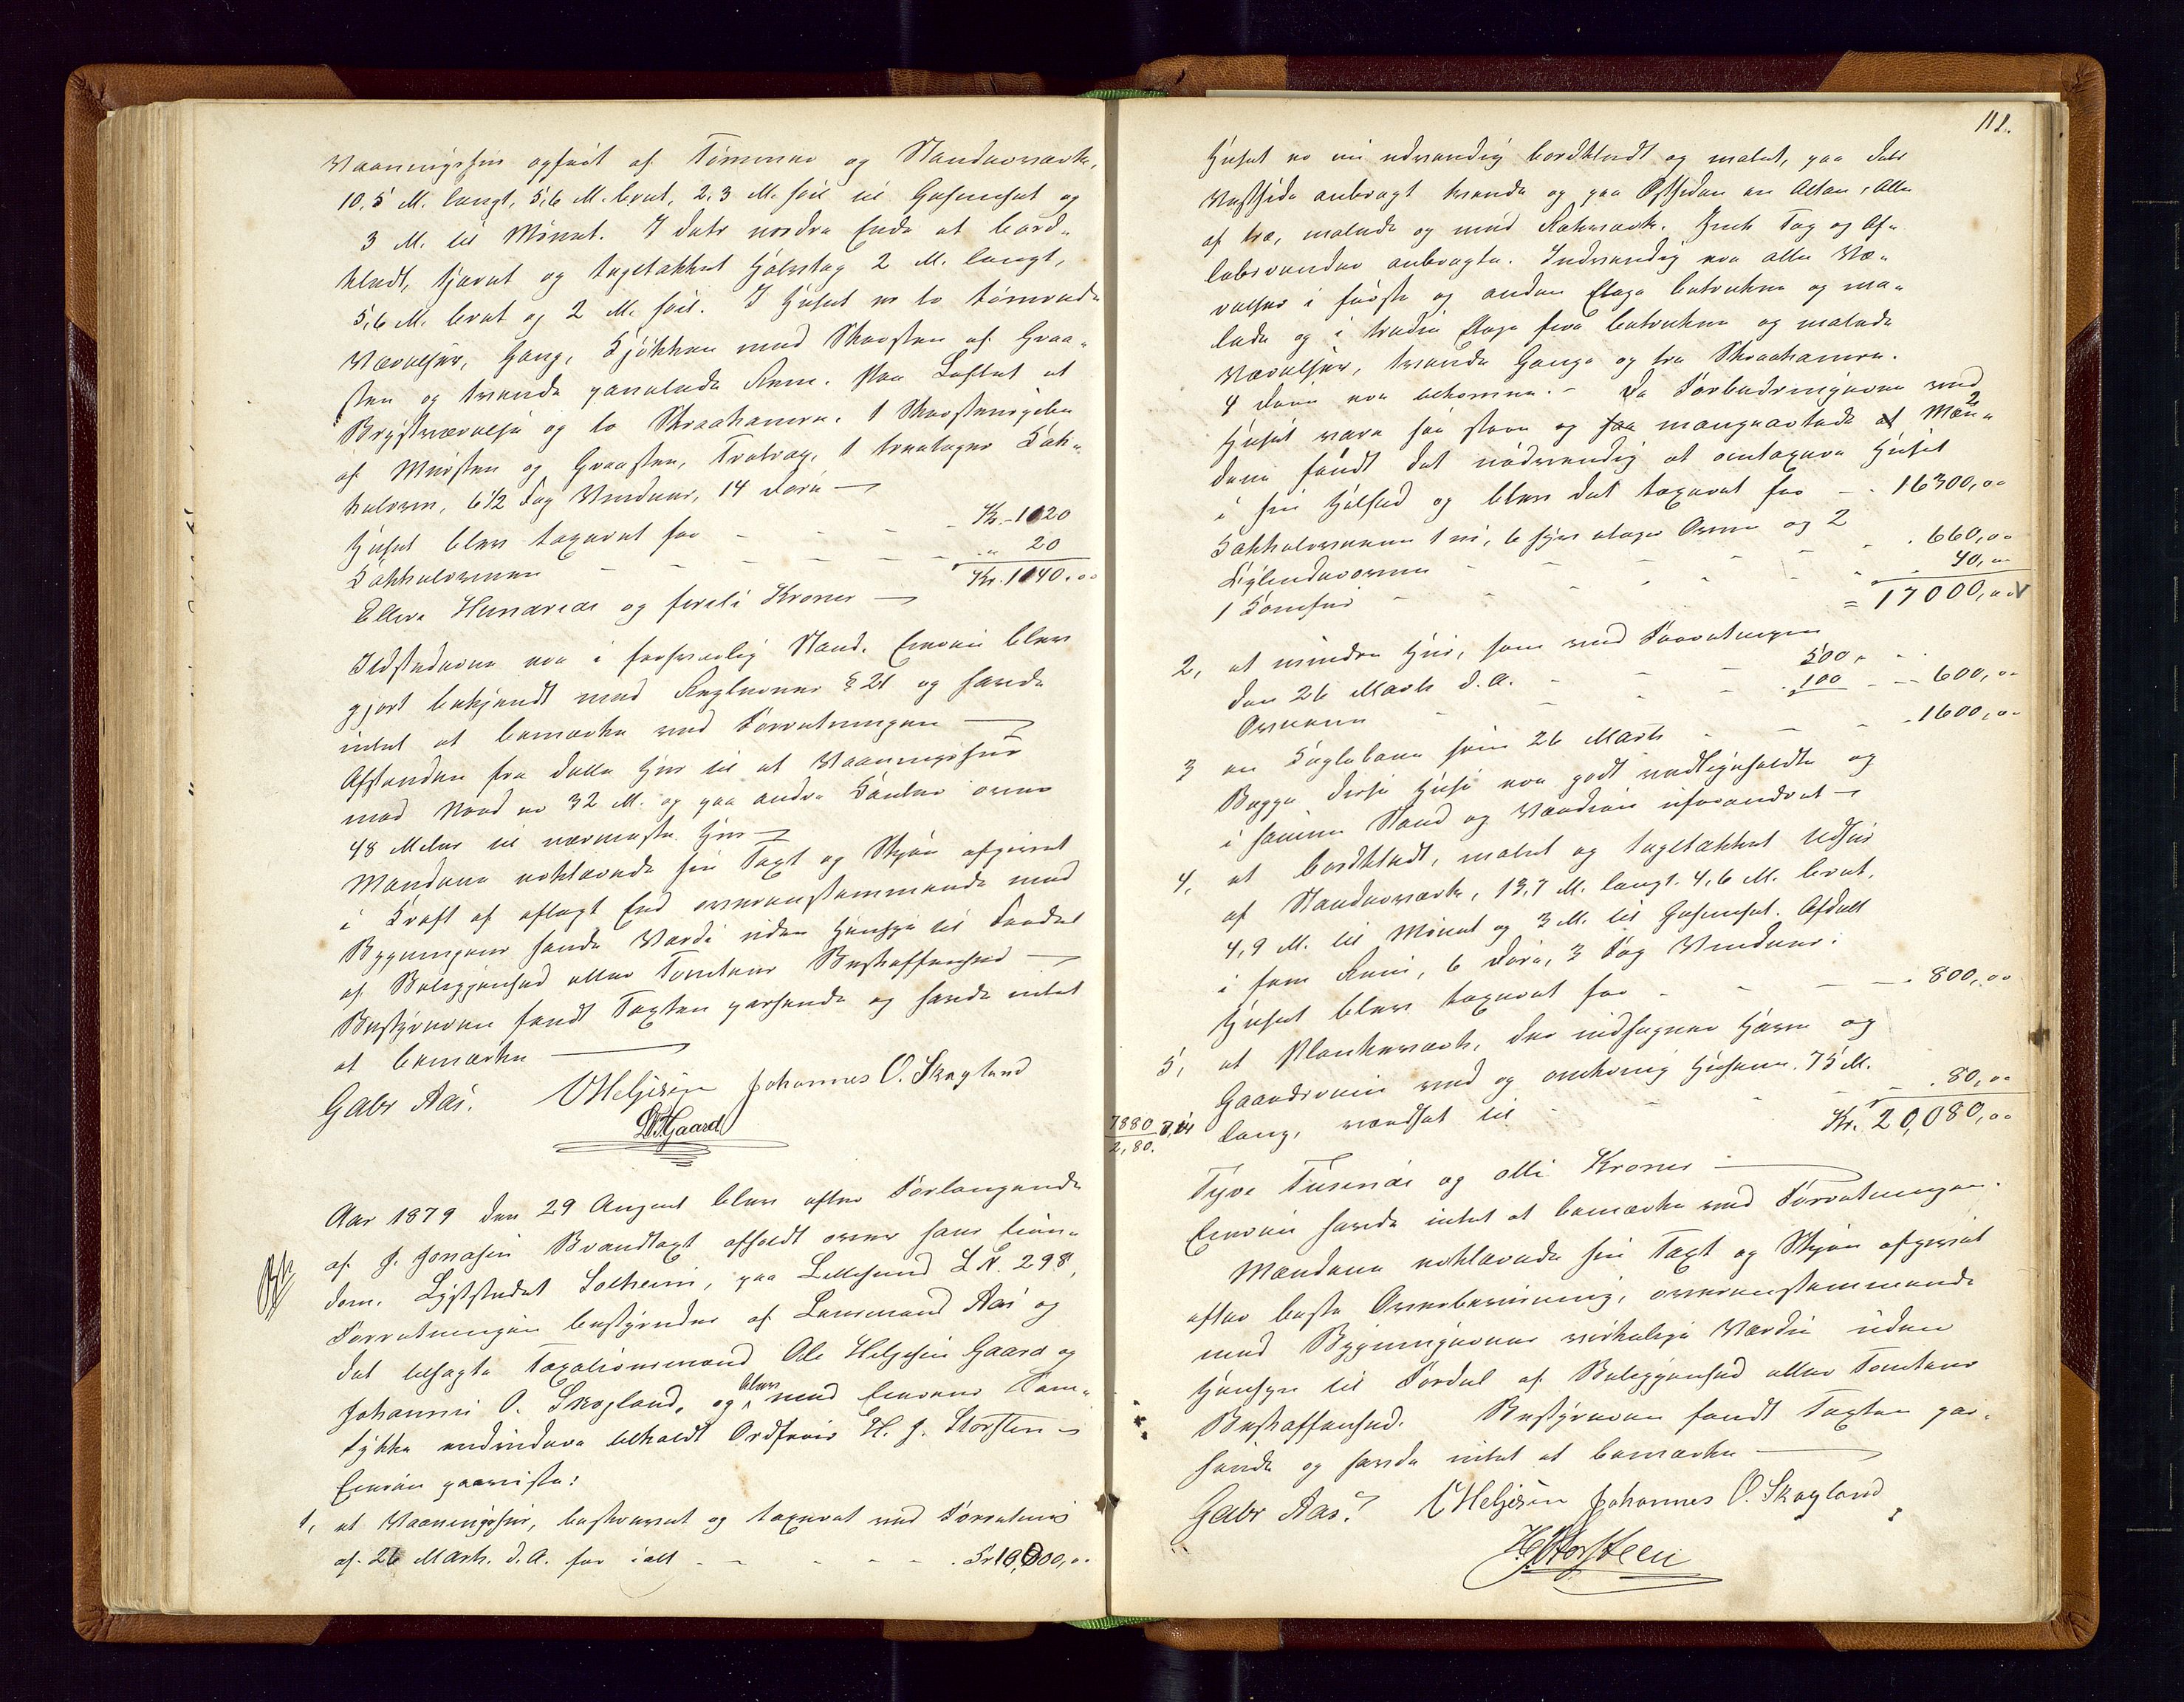 Vaaningshus opført af Tømmer og Standerværk,
10,5 M. langt, 5,6 M. bredt, 2,3 M. høit til Gesimset og
3 M. til Mønet. I dets nordre Ende et bord-
klædt, tjæret og tegltækket Halvtag 2 M. langt,
5,6 M. bredt og 2 M. høit. I Huset er to tømrede
Værelser, Gang, Kjøkken med Skorsten af Graa-
sten og tvende panelede Rum. Paa Loftet et
Brystværelse og to Skraakamre. 1 Skorstenspibe
af Mursten og Graasten, Trætrap, 1 treetages Kak-
kelovn, 6 1/2 Fag Vinduer, 14 Døre
Huset blev taxeret for - - - Kr. 1120
Kakkelovnen - - - - - " 20
Kr. 1140,00
Elleve Hundrede og fireti Kroner
Ildstederne var i forsvarlig Stand. Eieren blev
gjort bekjendt med Reglernes § 21 og havde
intet at bemærke ved Forretningen
Afstanden fra dette Hus til et Vaaningshus
mod Nord er 32 M. og paa andre Kanter over
48 Meter til nærmeste Hus
Mændene erklærede sin Taxt og Skjøn afgivet
i Kraft af aflagt Eed overensstemmende med
Bygningens sande Værdi uden Hensyn til Fordel
af Beliggenhed eller Tomtens Beskaffenhed
Bestyreren fandt Taxten passende og havde intet
at bemærke
Gabr Aas. O Helgesen Johannes O. Skogland
Gaard
Aar 1879 den 29 August blev efter Forlangende
af J. Jonassen Brandtaxt afholdt over hans Eien-
dom, Lyststedet Solheim, paa Lillesund L N. 298,
Forretningen bestyredes af Lensmand Aas og
det tilsagte Taxationsmænd Ole Helgesen Gaard og
Johannes O. Skogland, og blev med Eierens Sam-
tykke endvidere tilkaldt Ordfører H. J. Storsten
Eieren paaviste:
1, et Vaaningshus, beskrevet og taxeret ved Forretning
af 26 Marts d. A. for ialt - - - - Kr 10,000,00
112.
Huset er nu udvendig bordklædt og malet, paa dets
Vestside anbragt tvende og paa Østsiden en Altan, alle
af træ, malede og med Rækværk. Zink Tag og Af-
løbsrender anbragte. Indvendig var alle Væ-
relser i første og anden Etage betrukne og ma-
lede og i tredie Etage fire betrukne og malede
Værelser, tvende Gange og tre Skraakamre.
4 Døre var tilkomne. - Da Forbedringerne ved
Huset vare saa store og mangeartede at Mæn-
dene fandt det nødvendig at omtaxere Huset
i sin Helhed og blev det taxeret for - . 16300,00
Kakkelovnene 1 ni, 6 fyre etages Ovne og 2
Sylinderovne - - - - . 660,00
1 Komfur - - - - 40,00
= 17000,00 V
2, et mindre Hus, som ved Forretningen
den 26 Marts d. A. - - - 500,
Ovnene - - - 100 - - 600,00
3 en Keglebane som 26 Marts - - - 1600,00
Begge disse Huse var godt vedligeholdte og
i samme Stand og Værdien uforandret
4, et bordklædt, malet og tegltækket Udhus
af Standerværk, 13,7 M. langt. 4,6 M. bredt,
4,9 M. til Mønet og 3 M. til Gesimset. Afdelt
i fem Rum, 6 Døre, 3 Fag Vinduer.
Huset blev taxeret for - - - . 800,00
5, et Plankeværk, der indhegner Have og
Gaardsrum ved og omkring Husene. 75 M.
lang, værdsat til - - - . 80,00
7880
2,80.
Kr. 20,080,00
Tyve Tusinde og otti Kroner
Eieren havde intet at bemærke ved Forretningen.
Mændene erklærede sin Taxt og Skjøn afgivet
efter bedste Overbevisning, overensstemmende
med Bygningernes virkelige Værdi uden
Hensyn til Fordel af Beliggenhed eller Tomtens
Beskaffenhed. Bestyreren fandt Taxten pas-
sende og havde intet at bemærke
Gabr Aas. O Helgesen Johannes O. Skogland
H J Storsteen